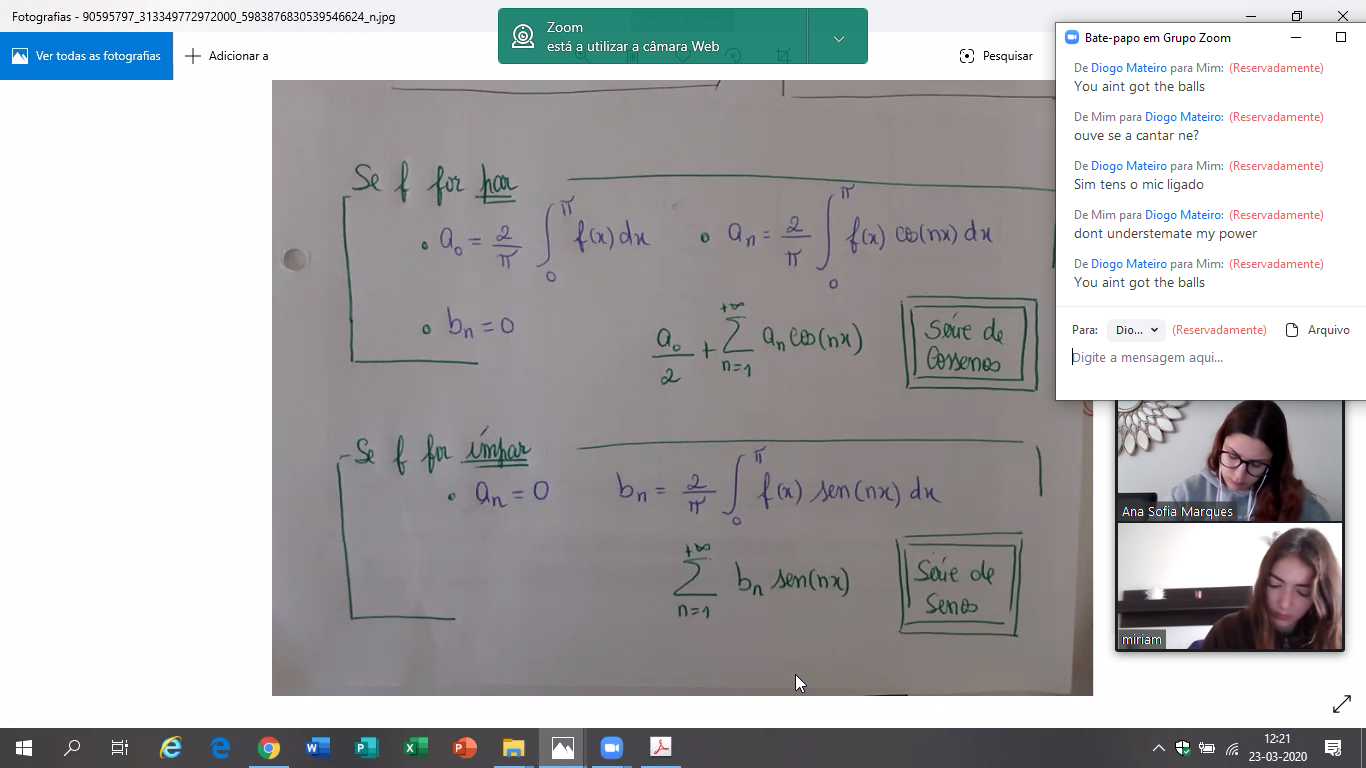 Fotografias - 90595797_313349772972000_5983876830539546624_n.jpg
Zoom
está a utilizar a câmara Web
Ver todas as fotografias
Adicionar a
Pesquisar
Se f for par
• a₀ = 2/π ∫₀^π f(x) dx • aₙ = 2/π ∫₀^π f(x) cos(nx) dx
• bₙ = 0
a₀/2 + ∑_{n=1}^{+∞} aₙ cos(nx)
Série de
Cossenos
Se f for ímpar
• aₙ = 0 bₙ = 2/π ∫₀^π f(x) sen(nx) dx
∑_{n=1}^{+∞} bₙ sen(nx)
Série de
Senos
Bate-papo em Grupo Zoom
De Diogo Mateiro para Mim: (Reservadamente)
You aint got the balls
De Mim para Diogo Mateiro: (Reservadamente)
ouve se a cantar ne?
De Diogo Mateiro para Mim: (Reservadamente)
Sim tens o mic ligado
De Mim para Diogo Mateiro: (Reservadamente)
dont understemate my power
De Diogo Mateiro para Mim: (Reservadamente)
You aint got the balls
Para: Dio... (Reservadamente) Arquivo
Digite a mensagem aqui...
Ana Sofia Marques
miriam
12:21
23-03-2020